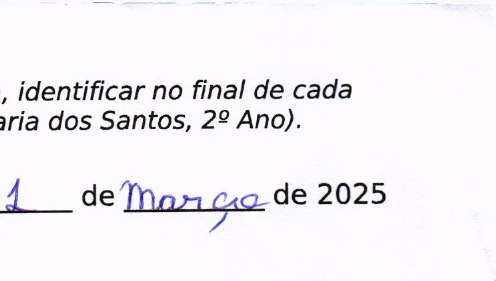 , identificar no final de cada
aria dos Santos, 2º Ano).
1 de Março de 2025